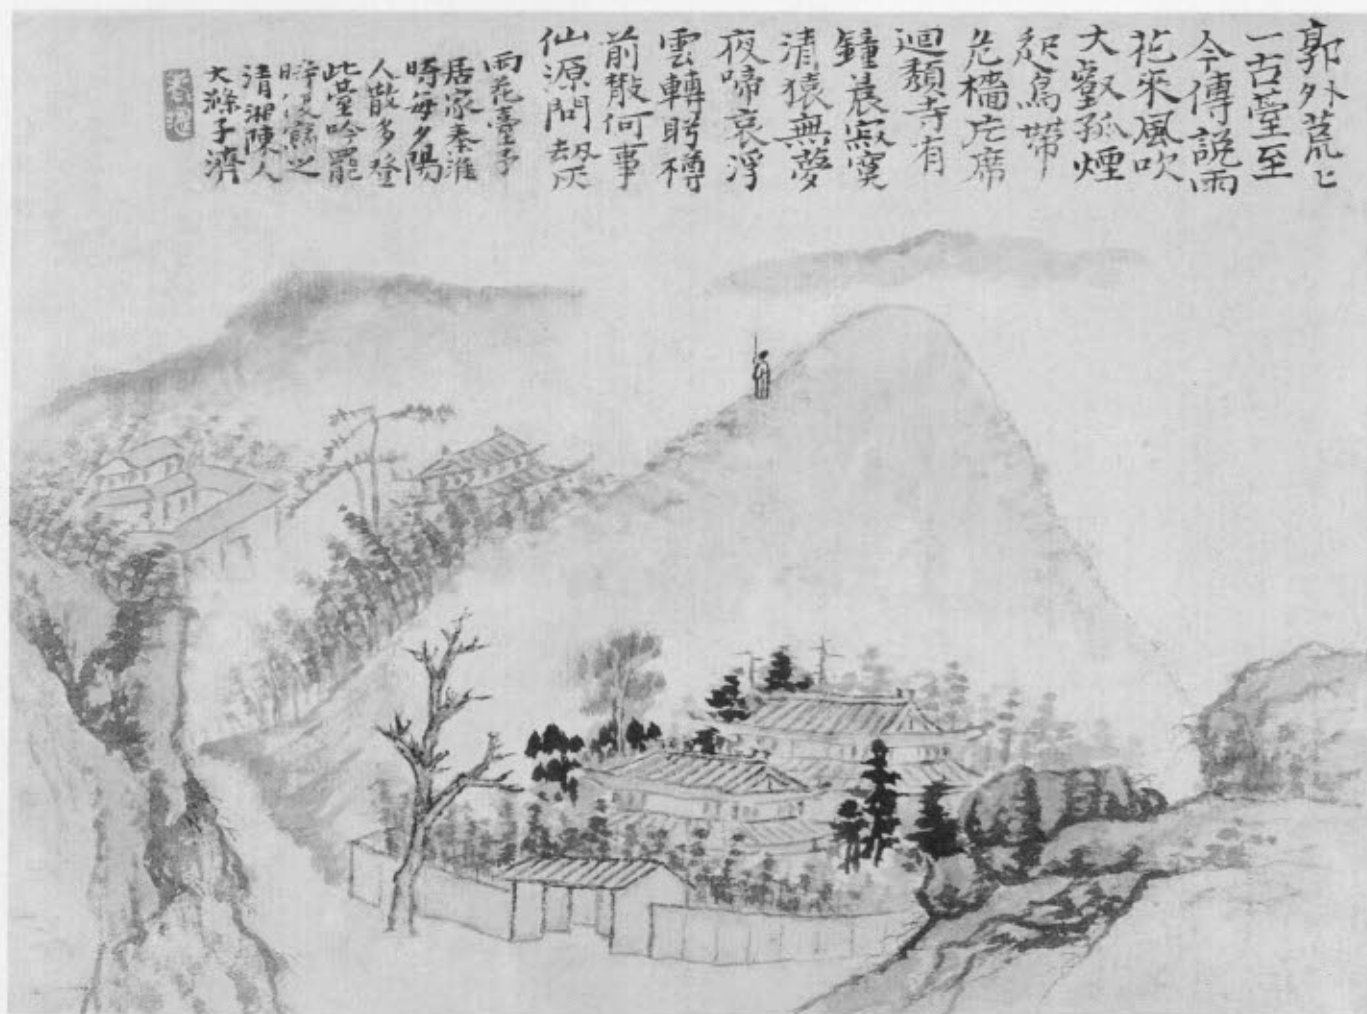 郭外荒々
一古臺至
今傳說雨
花來風吹
大壑孤煙
起鳥帶
危檣片席
迴頹寺有
鐘晨寂寞
清猿無夢
夜啼哀浮
雲轉眄樽
前散何事
仙源問劫灰
雨花臺予
居家秦淮
時每夕陽
人散多登
此臺吟罷
之
清湘陳人
大滌子濟